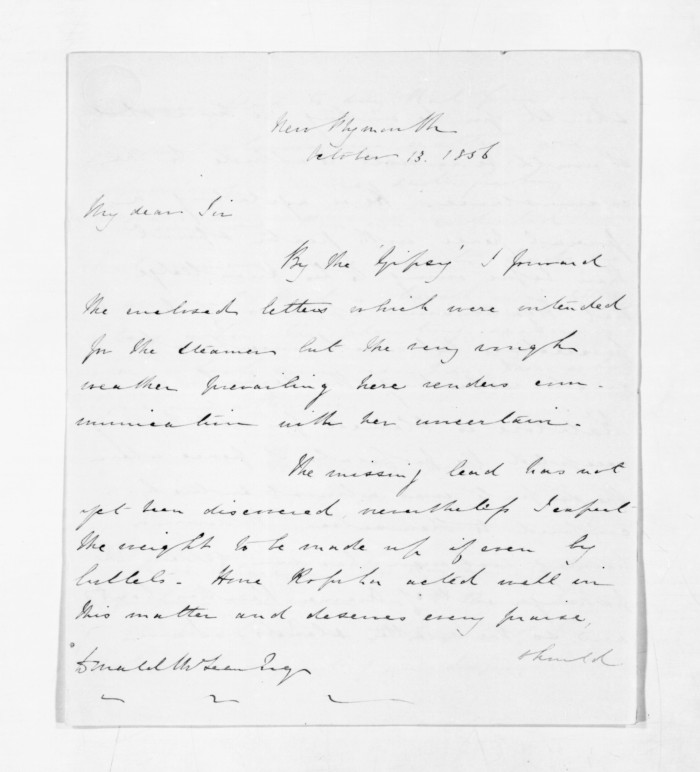 New Plymouth
October 13. 1856
My dear Sir
By the 'Gipsy' I forward
the enclosed letters which were intended
for the steamer but the very rough
weather prevailing here renders com-
munication with her uncertain.
The missing lead has not
yet been discovered, nevertheless I expect
the weight to be made up if even by
bullets. Hone Ropiha acted well in
this matter and deserves every praise,
should
Donald McLean Esq